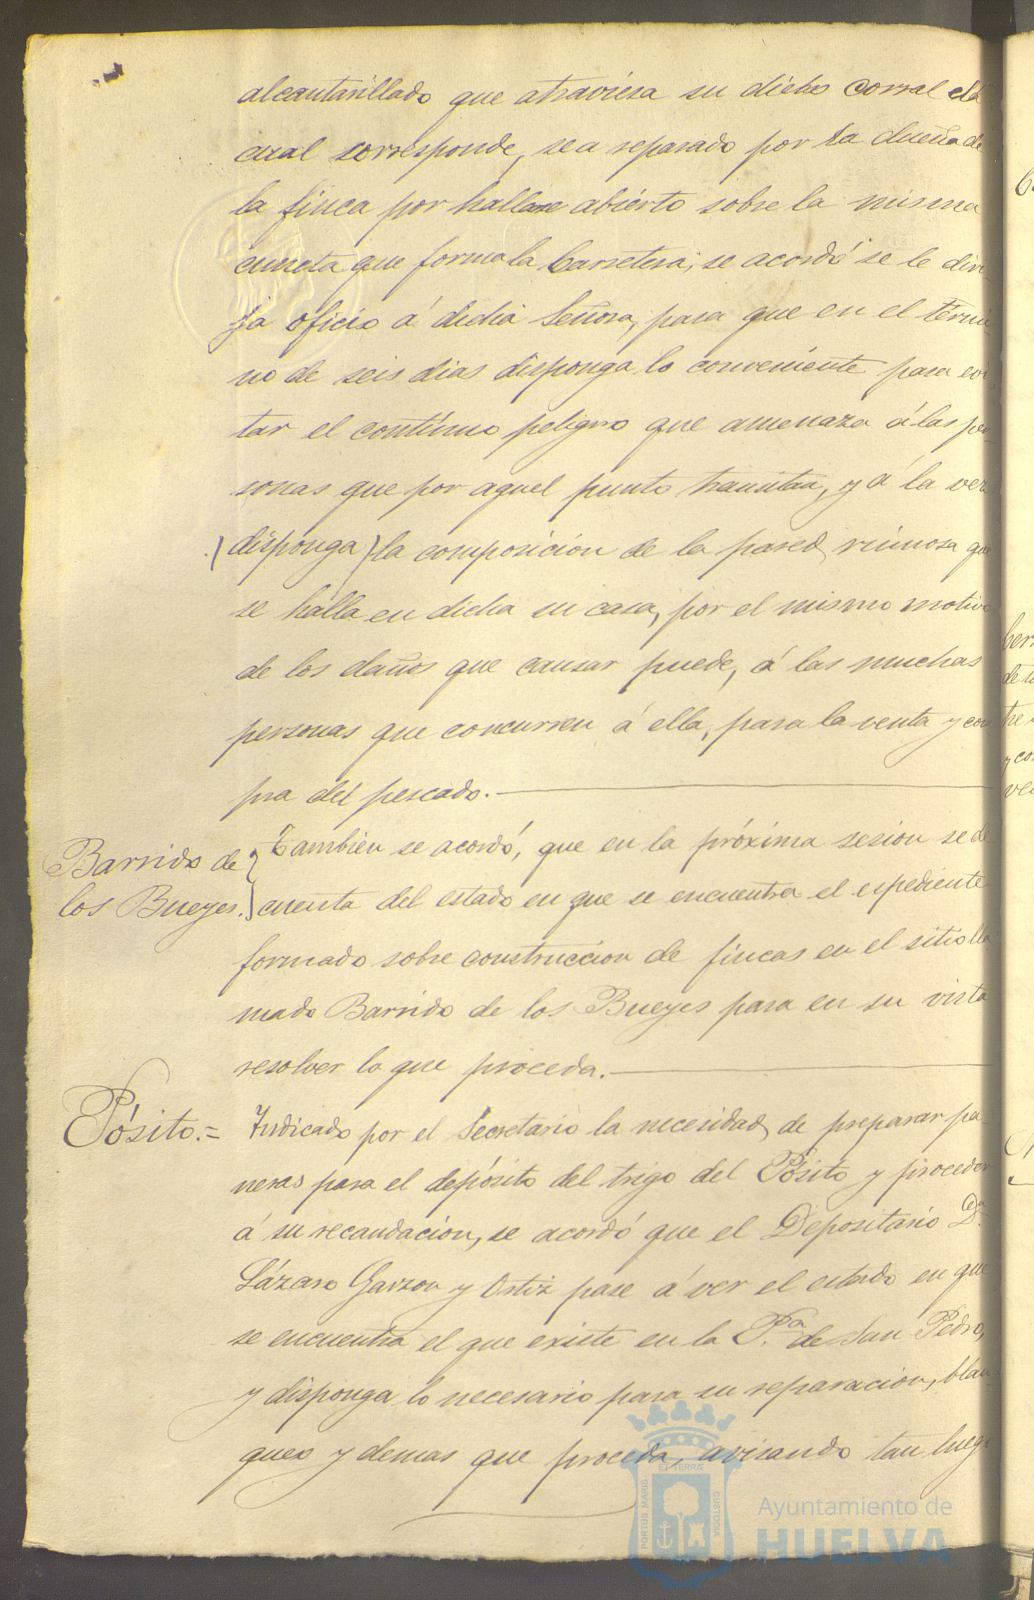 alcantarillado que atraviésa su dicho corral el
cual corresponde, sea reparado por la dueña de
la finca por hallarse abiérto sobre la misma
cuneta que forma la Carretera; se acordó se le diri-
ja oficio á dicha Señora, para que en el térmi
no de seis dias disponga lo conveniente para evi
tar el contínuo peligro que amenaza á las per
sonas que por aquel punto transitan, y á la vez
disponga la composición de la pared ruinosa que
se halla en dicha su casa, por el mismo motivo
de los daños que causar puede, á las muchas
personas que concurren á ella, para la venta y com
pra del pescado.
Barrido de
los Bueyes.
Tambiên se acordó, que en la próxima sesion se dé
cuenta del estado en que se encuentra el espediente
formado sobre construccion de fincas en el sitio lla
mado Barrido de los Bueyes para en su vista
resolver lo que proceda.
Pósito.=
Indicado por el Secretario la necesidad de preparar pa-
neras para el depósito del trigo del Pósito y proceder
á su recaudacion, se acordó que el Depositario
Lázaro Garzon y Ortiz pase á ver el estado en que
se encuentra el que existe en la P.ª de San Pedro,
y disponga lo necesario para su reparacion, blan
queo y demas que proceda, avisando tan luego
PORTUS MARIS ET TERRÆ CUSTODIA
Ayuntamiento de
HUELVA